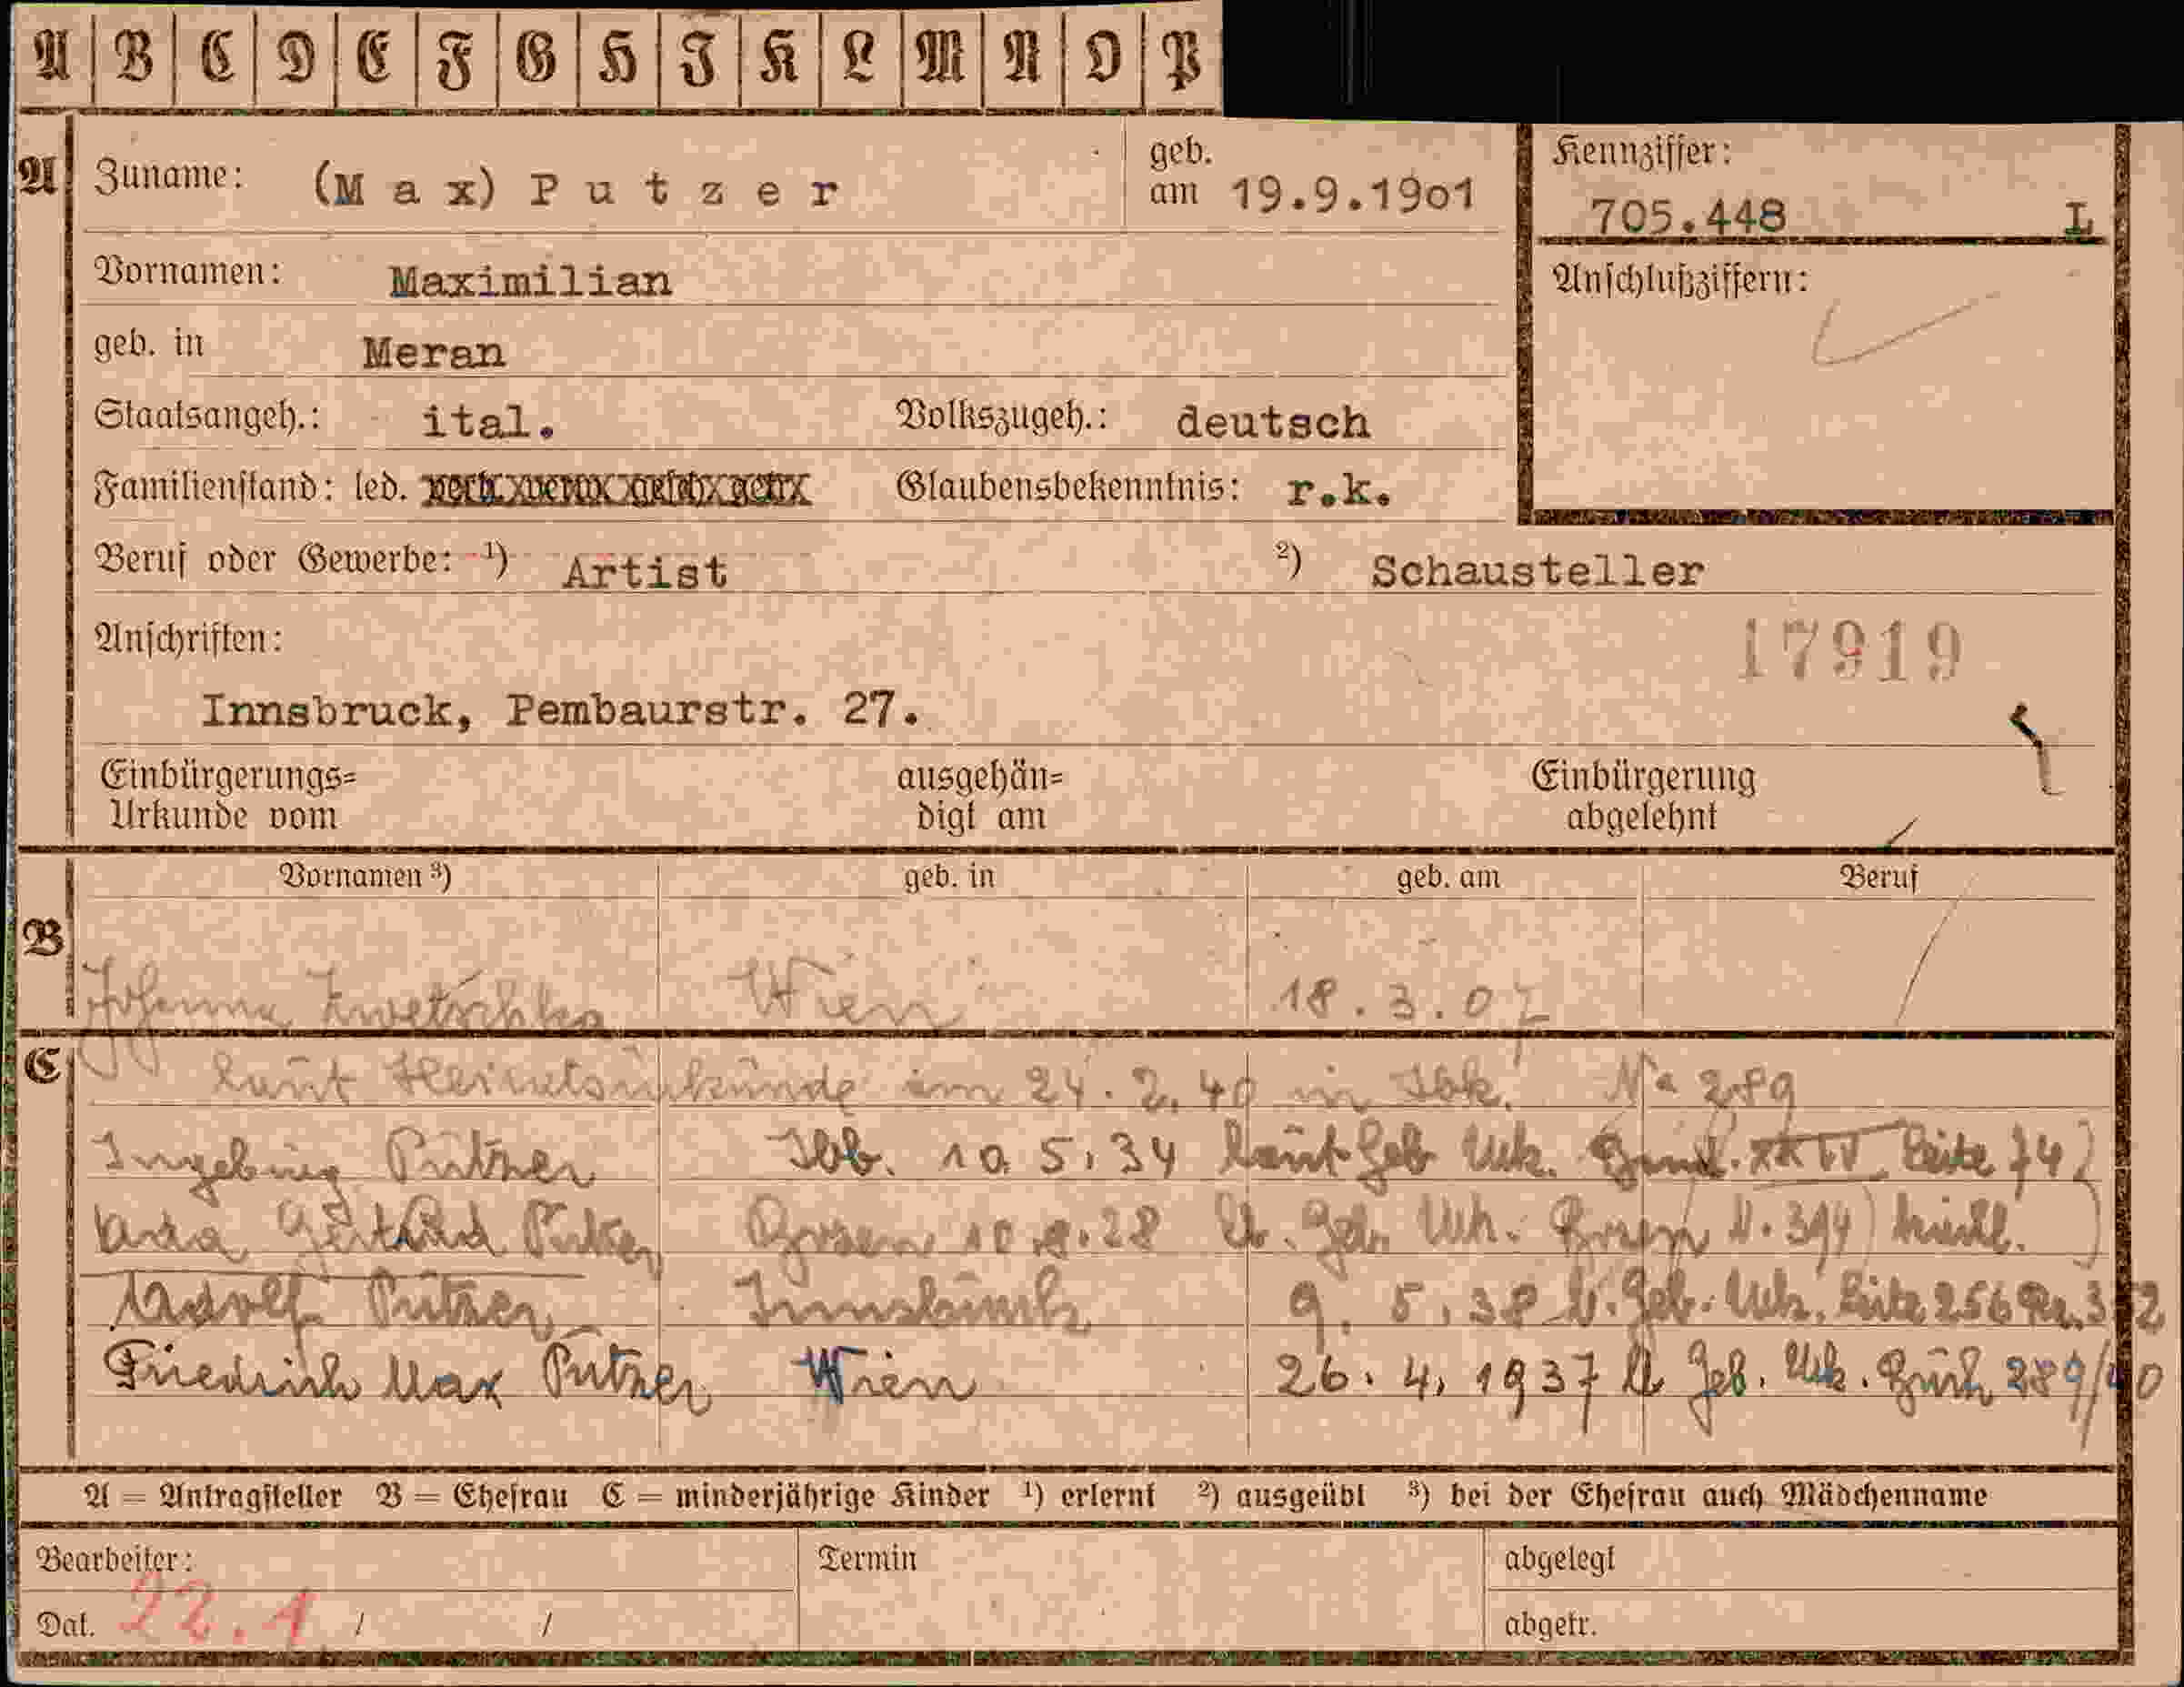 A B C D E F G H I K L M N O P
A Zuname: (M a x) P u t z e r geb. am 19.9.1901 Kennziffer: 705.448 L
Vornamen: Maximilian Anschlußziffern:
geb. in Meran
Staatsangeh.: ital. Volkszugeh.: deutsch
Familienstand: led. Glaubensbekenntnis: r.k.
Beruf oder Gewerbe: ¹) Artist ²) Schausteller
Anschriften: 17919
Innsbruck, Pembaurstr. 27.
Einbürgerungs= ausgehän= Einbürgerung
Urkunde vom digt am abgelehnt
Vornamen ³) geb. in geb. am Beruf
B
Johanna Zwetschka Wien 18.3.07
C laut Heiratsurkunde am 24.2.40 in Ibk. 289
Ingeborg Putzer Ibk. 10.5.34 laut Geb Urk. XXIV Seite 74
Gertrud Putzer Bozen 28 lt. Geb. Urk. Bozen N. 394
Adolf Putzer Innsbruck 9.5.38 lt. Geb. Urk. Seite 256
Friedrich Max Putzer Wien 26.4.1937 lt Geb. Urk. 289/40
A = Antragsteller B = Ehefrau C = minderjährige Kinder ¹) erlernt ²) ausgeübt ³) bei der Ehefrau auch Mädchenname
Bearbeiter: Termin abgelegt
Dat. 22.1 / / abgetr.